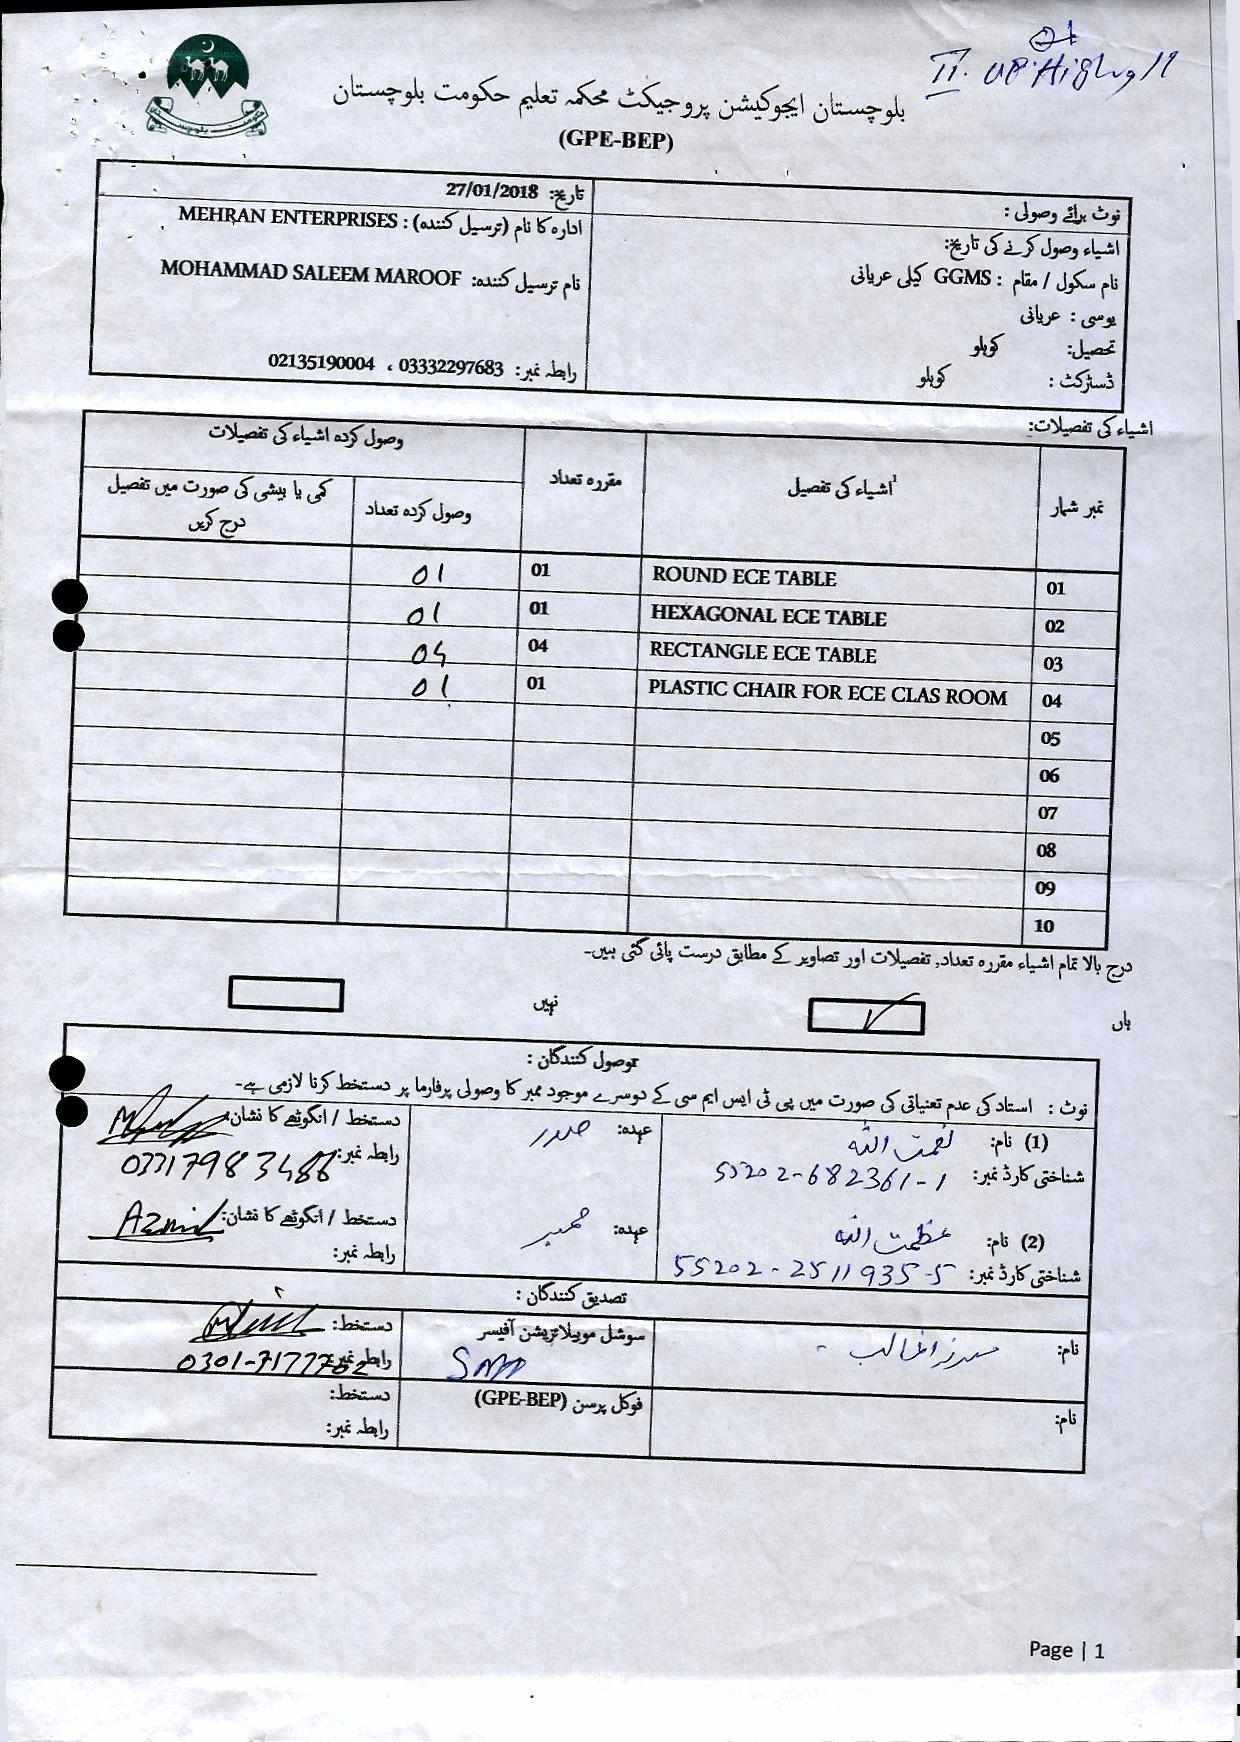 01
II. UP. High
بلوچستان ایجوکیشن پروجیکٹ محکمہ تعلیم حکومت بلوچستان
(GPE-BEP)
نوٹ برائے وصولی :
اشیاء وصول کرنے کی تاریخ:
نام سکول / مقام : GGMS کیلی عریانی
یوسی : عریانی
تحصیل: کوہلو
ڈسٹرکٹ : کوہلو
تاریخ: 27/01/2018
ادارہ کا نام (ترسیل کنندہ) : MEHRAN ENTERPRISES
نام ترسیل کنندہ: MOHAMMAD SALEEM MAROOF
رابطہ نمبر: 03332297683 ، 02135190004
اشیاء کی تفصیلات:
نمبر شمار اشیاء کی تفصیل1 مقررہ تعداد وصول کردہ اشیاء کی تفصیلات
وصول کردہ تعداد کمی یا بیشی کی صورت میں تفصیل درج کریں
01 ROUND ECE TABLE 01 01
02 HEXAGONAL ECE TABLE 01 01
03 RECTANGLE ECE TABLE 04 04
04 PLASTIC CHAIR FOR ECE CLAS ROOM 01 01
05
06
07
08
09
10
درج بالا تمام اشیاء مقررہ تعداد, تفصیلات اور تصاویر کے مطابق درست پائی گئی ہیں۔
ہاں ✓ نہیں
وصول کنندگان :
نوٹ : استاد کی عدم تعیناتی کی صورت میں پی ٹی ایس ایم سی کے دوسرے موجود ممبر کا وصولی پرفارما پر دستخط کرنا لازمی ہے۔
(1) نام: نعمت اللہ عہدہ: صدر دستخط / انگوٹھے کا نشان:
شناختی کارڈ نمبر: 55202-682361-1 رابطہ نمبر: 03317983486
(2) نام: عظمت اللہ عہدہ: ممبر دستخط / انگوٹھے کا نشان: Azmil
شناختی کارڈ نمبر: 55202-2511935-5 رابطہ نمبر:
تصدیق کنندگان :
نام: سوشل موبیلائزیشن آفیسر دستخط:
SMO رابطہ نمبر: 0301-7177702
نام: فوکل پرسن (GPE-BEP) دستخط:
رابطہ نمبر:
Page | 1